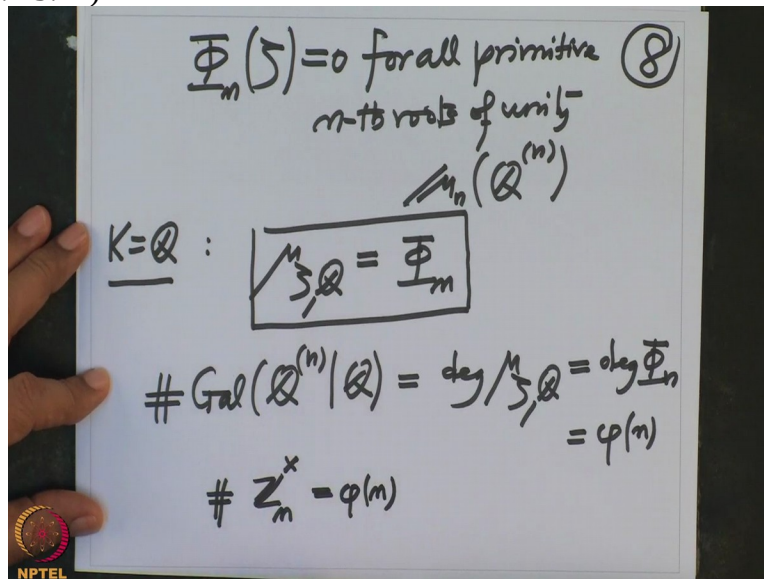 Φ_n(ζ)=0 for all primitive ⑧
n-th roots of unity
μ_n(Q^(n))
K=Q : μ_ζ,Q = Φ_n
# Gal(Q^(n)|Q) = deg μ_ζ,Q = deg Φ_n
= φ(n)
# Z_n^x = φ(n)
NPTEL